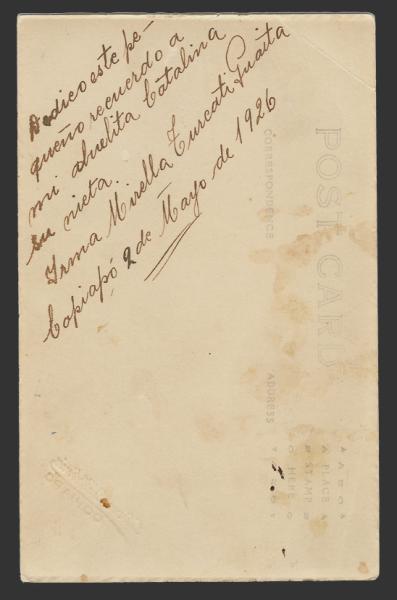 Dedico este pe-
queño recuerdo a
mi abuelita Catalina
su nieta.
Irma Mirella F. Turcati Guaita
Copiapó 2 de Mayo de 1926
POST CARD
CORRESPONDENCE
ADDRESS
PLACE
STAMP
HERE